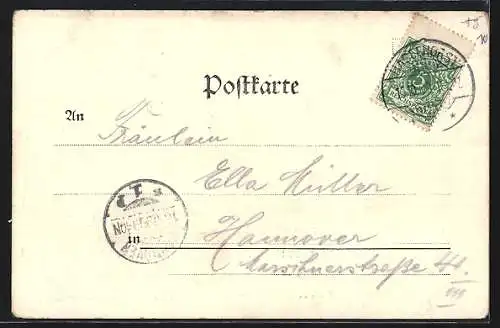 Postkarte
An
Fräulein
Ella Müller
in
Hannover
Marschnerstraße 44
III
5